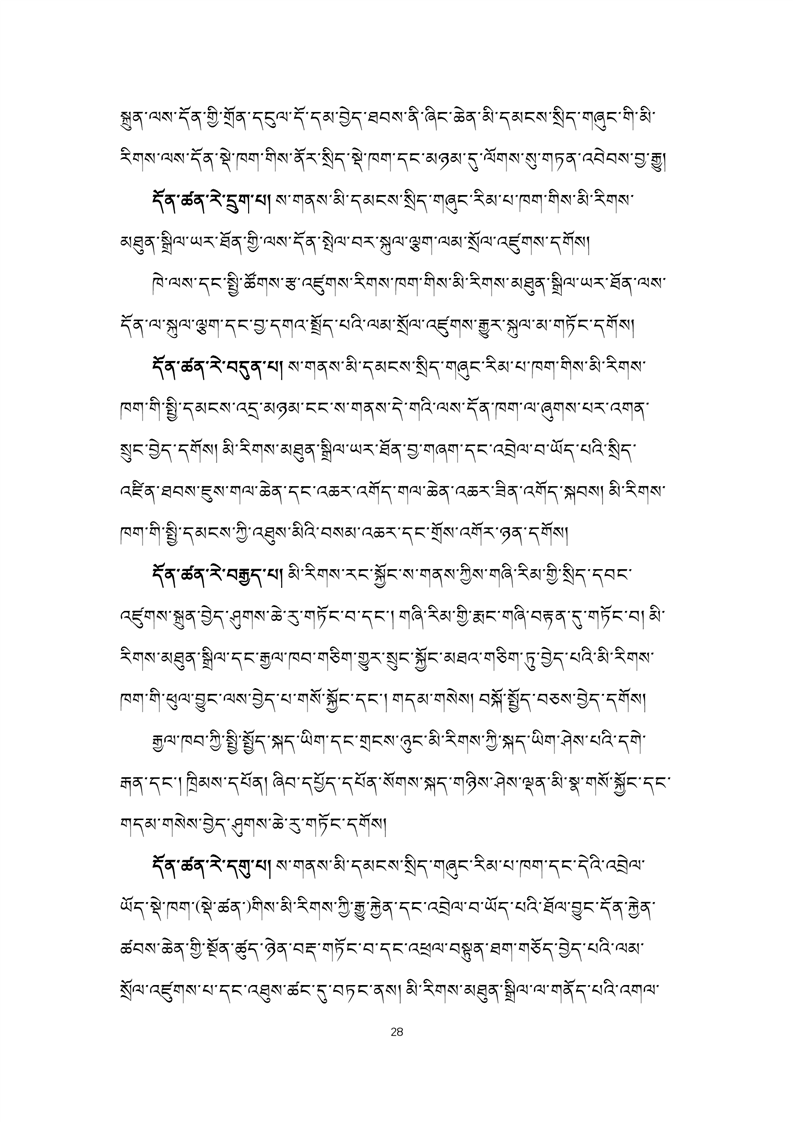 སྐྲུན་ལས་དོན་གྱི་གྲོན་དངུལ་དོ་དམ་བྱེད་ཐབས་ནི་ཞིང་ཆེན་མི་དམངས་སྲིད་གཞུང་གི་མི་
རིགས་ལས་དོན་སྡེ་ཁག་གིས་ནོར་སྲིད་སྡེ་ཁག་དང་མཉམ་དུ་ལོགས་སུ་གཏན་འབེབས་བྱ་རྒྱུ།
དོན་ཚན་རེ་དྲུག་པ། ས་གནས་མི་དམངས་སྲིད་གཞུང་རིམ་པ་ཁག་གིས་མི་རིགས་
མཐུན་སྒྲིལ་ཡར་ཐོན་གྱི་ལས་དོན་སྤེལ་བར་སྐུལ་ལྕག་ལམ་སྲོལ་འཛུགས་དགོས།
ཁེ་ལས་དང་སྤྱི་ཚོགས་རྩ་འཛུགས་རིགས་ཁག་གིས་མི་རིགས་མཐུན་སྒྲིལ་ཡར་ཐོན་ལས་
དོན་ལ་སྐུལ་ལྕག་དང་བྱ་དགའ་སྤྲོད་པའི་ལམ་སྲོལ་འཛུགས་རྒྱུར་སྐུལ་མ་གཏོང་དགོས།
དོན་ཚན་རེ་བདུན་པ། ས་གནས་མི་དམངས་སྲིད་གཞུང་རིམ་པ་ཁག་གིས་མི་རིགས་
ཁག་གི་སྤྱི་དམངས་འདྲ་མཉམ་ངང་ས་གནས་དེ་གའི་ལས་དོན་ཁག་ལ་ཞུགས་པར་འགན་
སྲུང་བྱེད་དགོས། མི་རིགས་མཐུན་སྒྲིལ་ཡར་ཐོན་བྱ་གཞག་དང་འབྲེལ་བ་ཡོད་པའི་སྲིད་
འཛིན་ཐབས་ཇུས་གལ་ཆེན་དང་འཆར་འགོད་གལ་ཆེན་འཆར་ཟིན་འགོད་སྐབས། མི་རིགས་
ཁག་གི་སྤྱི་དམངས་ཀྱི་འཐུས་མིའི་བསམ་འཆར་དང་གྲོས་འགོར་ཉན་དགོས།
དོན་ཚན་རེ་བརྒྱད་པ། མི་རིགས་རང་སྐྱོང་ས་གནས་ཀྱིས་གཞི་རིམ་གྱི་སྲིད་དབང་
འཛུགས་སྐྲུན་བྱེད་ཤུགས་ཆེ་རུ་གཏོང་བ་དང་། གཞི་རིམ་གྱི་རྨང་གཞི་བརྟན་དུ་གཏོང་བ། མི་
རིགས་མཐུན་སྒྲིལ་དང་རྒྱལ་ཁབ་གཅིག་གྱུར་སྲུང་སྐྱོང་མཐའ་གཅིག་ཏུ་བྱེད་པའི་མི་རིགས་
ཁག་གི་ཕུལ་བྱུང་ལས་བྱེད་པ་གསོ་སྐྱོང་དང་། གདམ་གསེས། བསྐོ་སྤྱོད་བཅས་བྱེད་དགོས།
རྒྱལ་ཁབ་ཀྱི་སྤྱི་སྤྱོད་སྐད་ཡིག་དང་གྲངས་ཉུང་མི་རིགས་ཀྱི་སྐད་ཡིག་ཤེས་པའི་དགེ་
རྒན་དང་། ཁྲིམས་དཔོན། ཞིབ་དཔྱོད་དཔོན་སོགས་སྐད་གཉིས་ཤེས་ལྡན་མི་སྣ་གསོ་སྐྱོང་དང་
གདམ་གསེས་བྱེད་ཤུགས་ཆེ་རུ་གཏོང་དགོས།
དོན་ཚན་རེ་དགུ་པ། ས་གནས་མི་དམངས་སྲིད་གཞུང་རིམ་པ་ཁག་དང་དེའི་འབྲེལ་
ཡོད་སྡེ་ཁག་(སྡེ་ཚན་)གིས་མི་རིགས་ཀྱི་རྒྱུ་རྐྱེན་དང་འབྲེལ་བ་ཡོད་པའི་ཐོལ་བྱུང་དོན་རྐྱེན་
ཚབས་ཆེན་གྱི་སྔོན་ཚུད་ཉེན་བརྡ་གཏོང་བ་དང་འཕྲལ་བསྟུན་ཐག་གཅོད་བྱེད་པའི་ལམ་
སྲོལ་འཛུགས་པ་དང་འཐུས་ཚང་དུ་བཏང་ནས། མི་རིགས་མཐུན་སྒྲིལ་ལ་གནོད་པའི་འགལ་
28